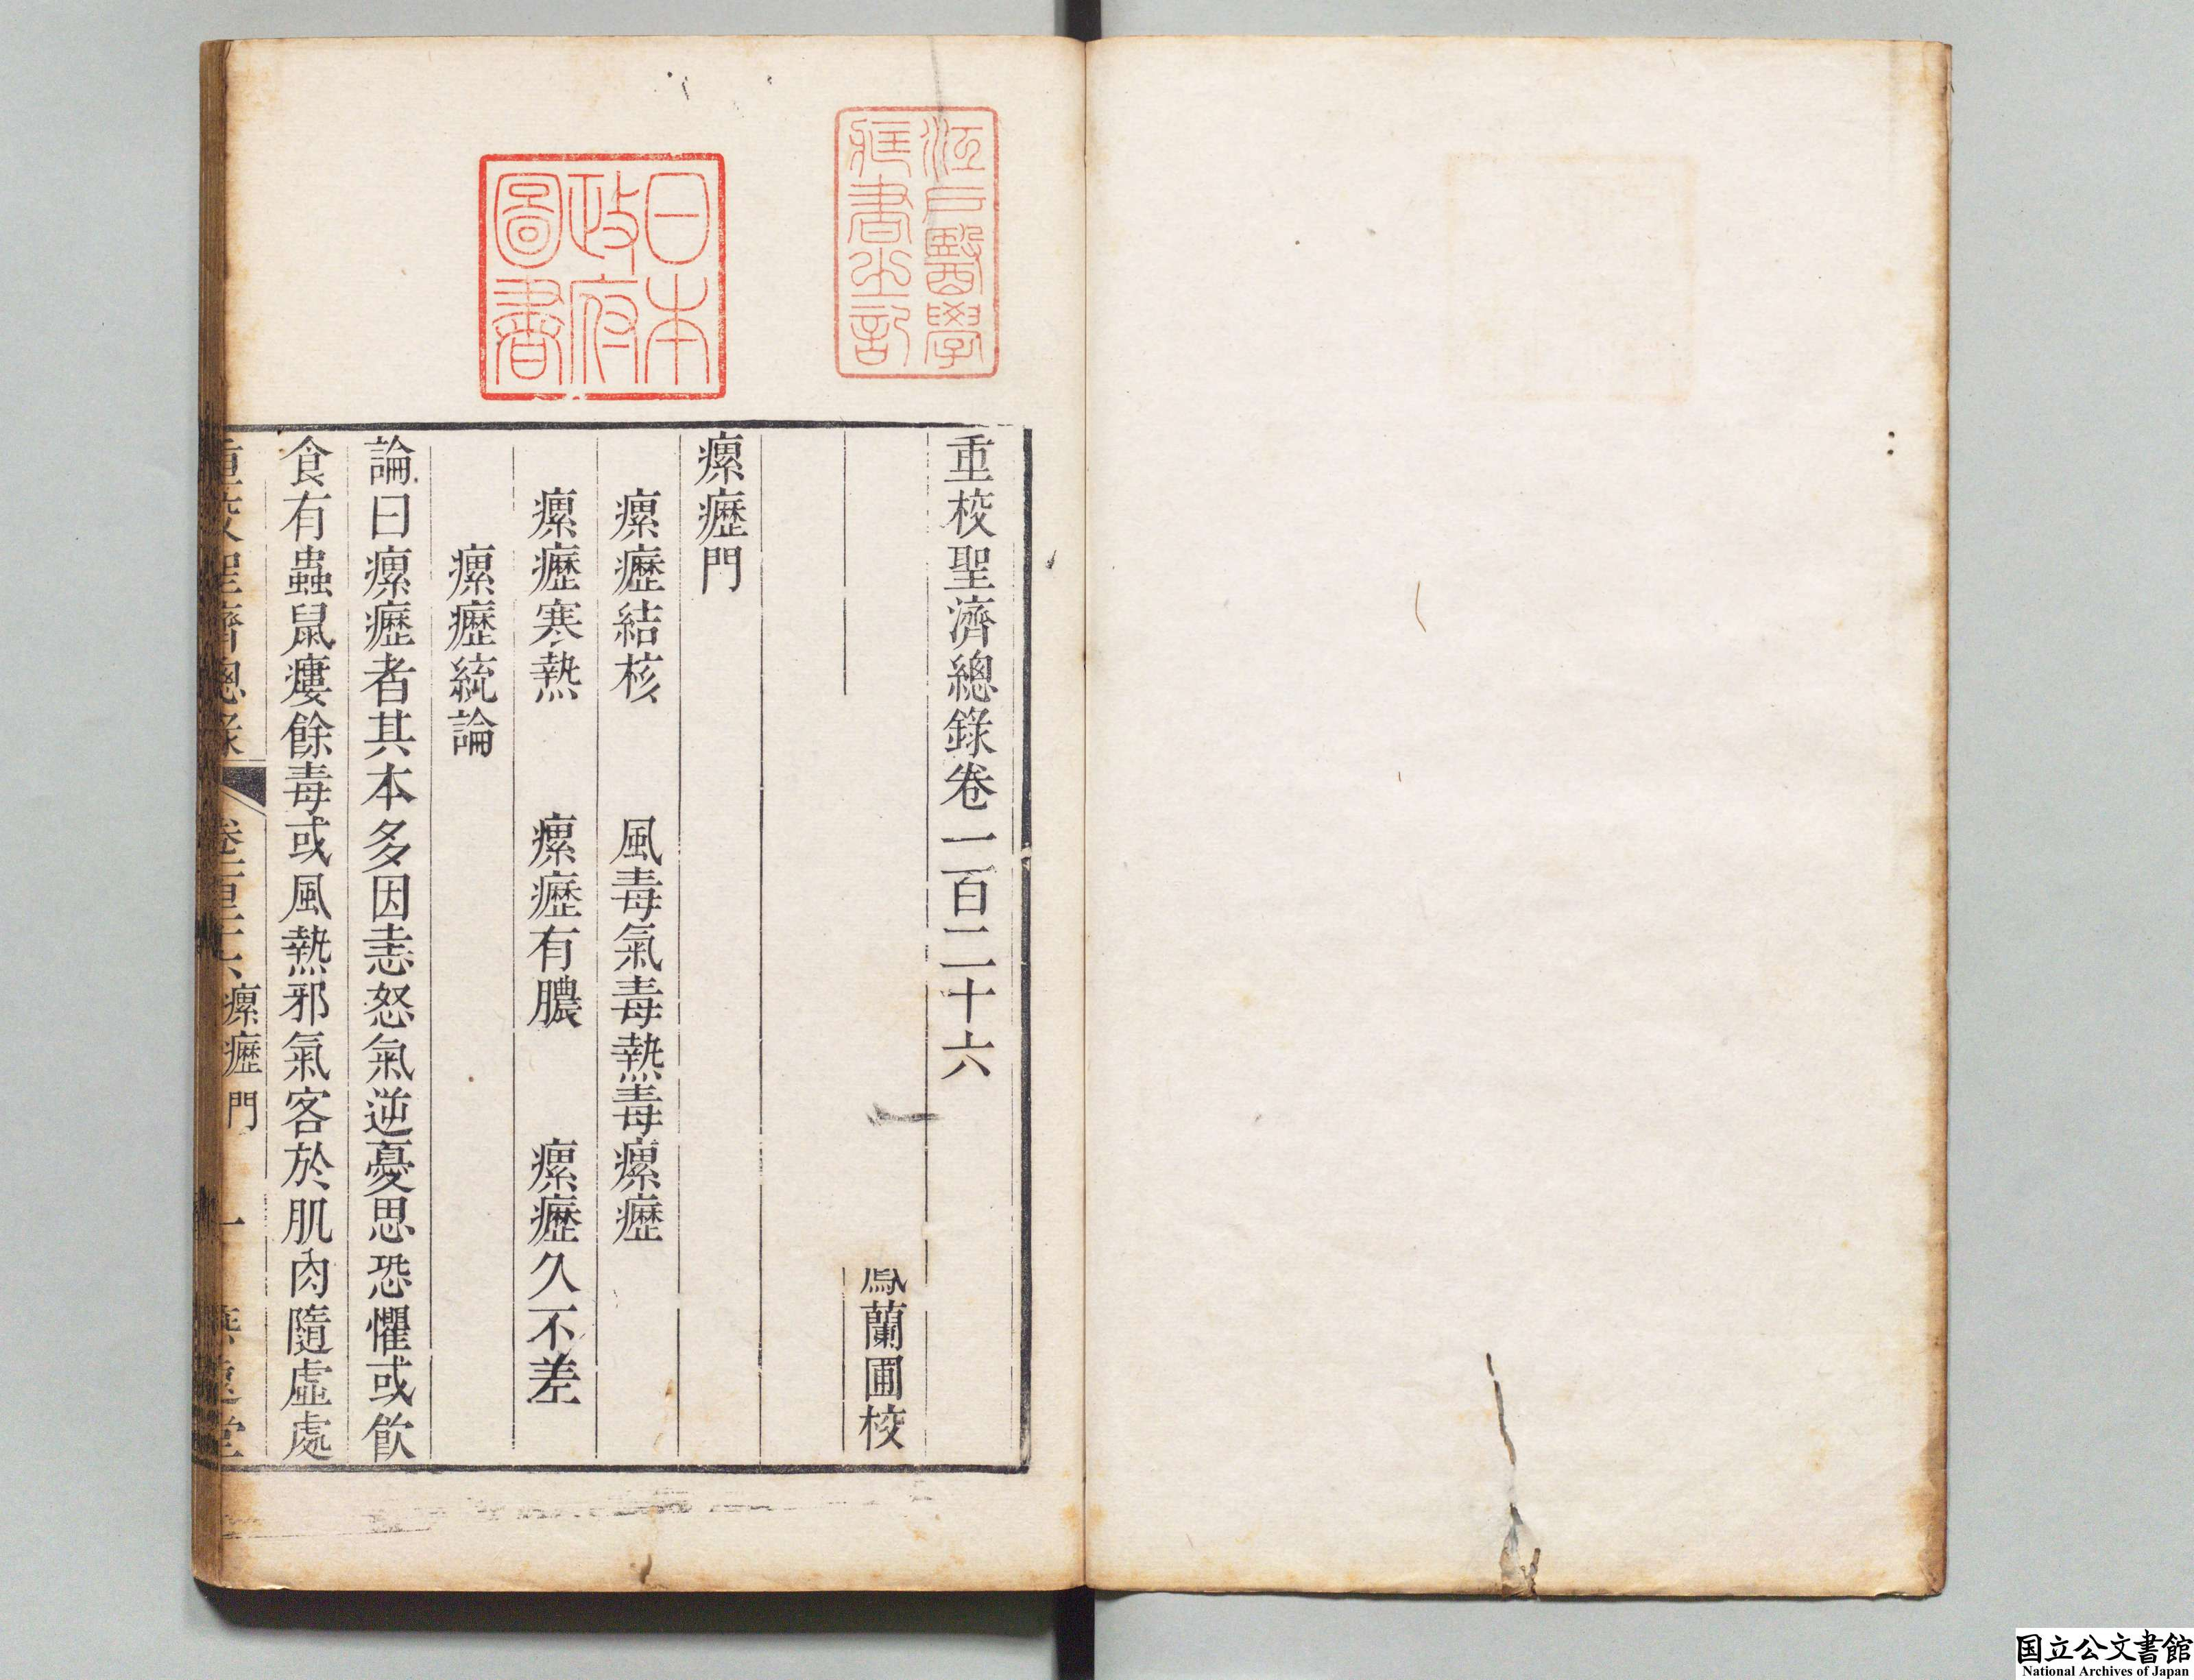 重校聖濟總錄卷一百二十六
蘭圃校
瘰癧門
瘰癧結核　風毒氣毒熱毒瘰癧
瘰癧寒熱　瘰癧有膿　瘰癧久不差
瘰癧統論
論曰瘰癧者其本多因恚怒氣逆憂思恐懼或飮
食有蟲鼠瘻餘毒或風熱邪氣客於肌肉隨虛處
重校聖濟總錄　卷一百二十六　瘰癧門　一
江戶醫學
藏書之記
日本
政府
圖書
国立公文書館
National Archives of Japan